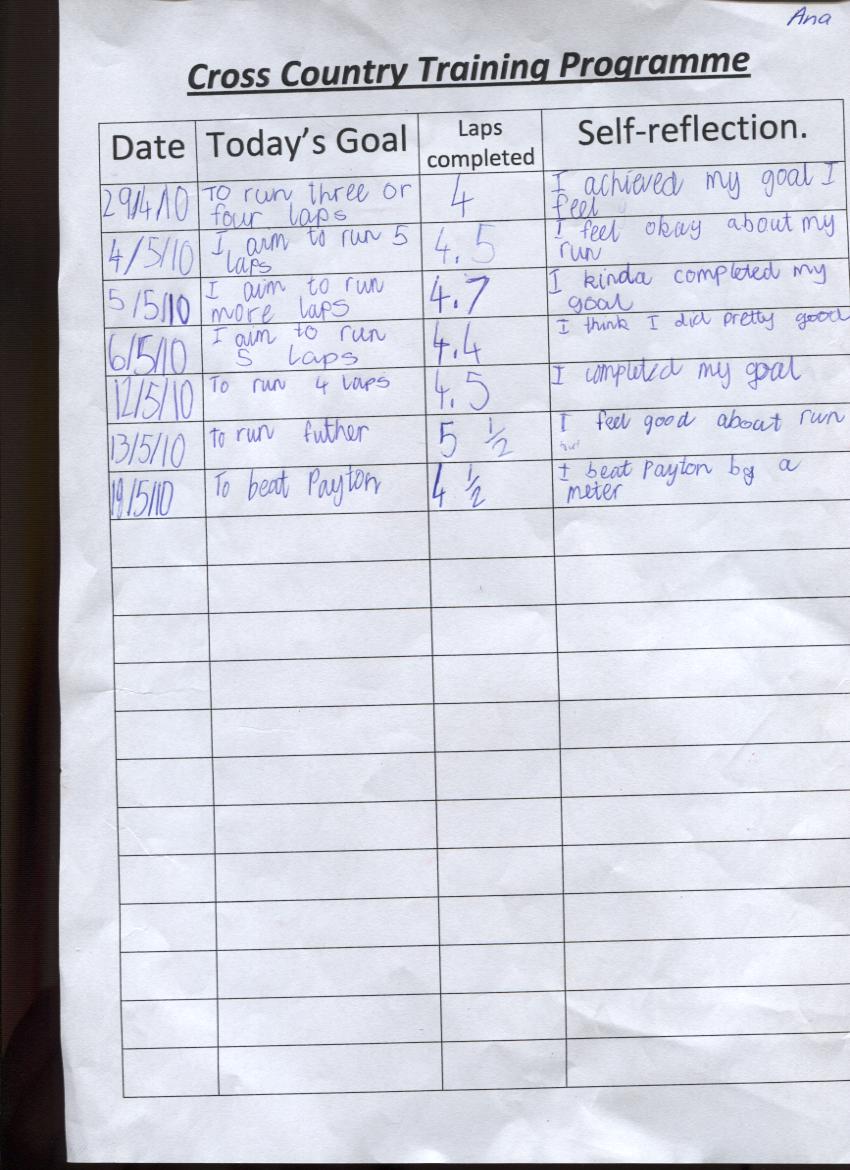 Ana
Cross Country Training Programme
Date Today's Goal Laps completed Self-reflection.
29/4/10 To run three or four laps 4 I achieved my goal I feel
4/5/10 I aim to run 5 laps 4.5 I feel okay about my run
5/5/10 I aim to run more laps 4.7 I kinda completed my goal
6/5/10 I aim to run 5 laps 4.4 I think I did pretty good
12/5/10 To run 4 laps 4.5 I completed my goal
13/5/10 To run futher 5 ½ I feel good about run
/5/10 To beat Payton 4 ½ I beat Payton by a meter